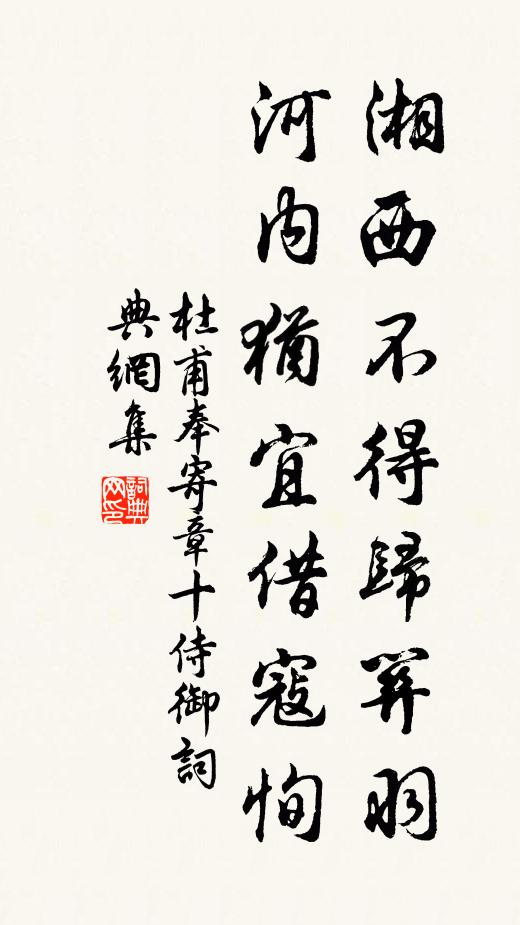 湘西不得歸關羽
河內猶宜借寇恂
杜甫奉寄章十侍御詞
典網集
詞典網印